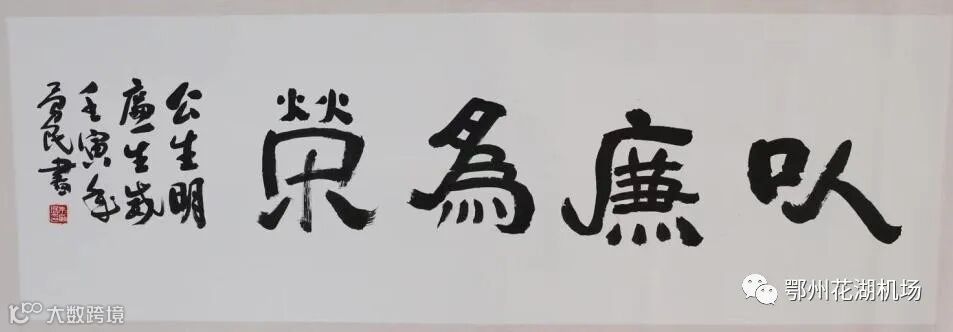 以廉為榮
公生明
廉生威
壬寅年
勇民書
鄂州花湖机场
大数跨境